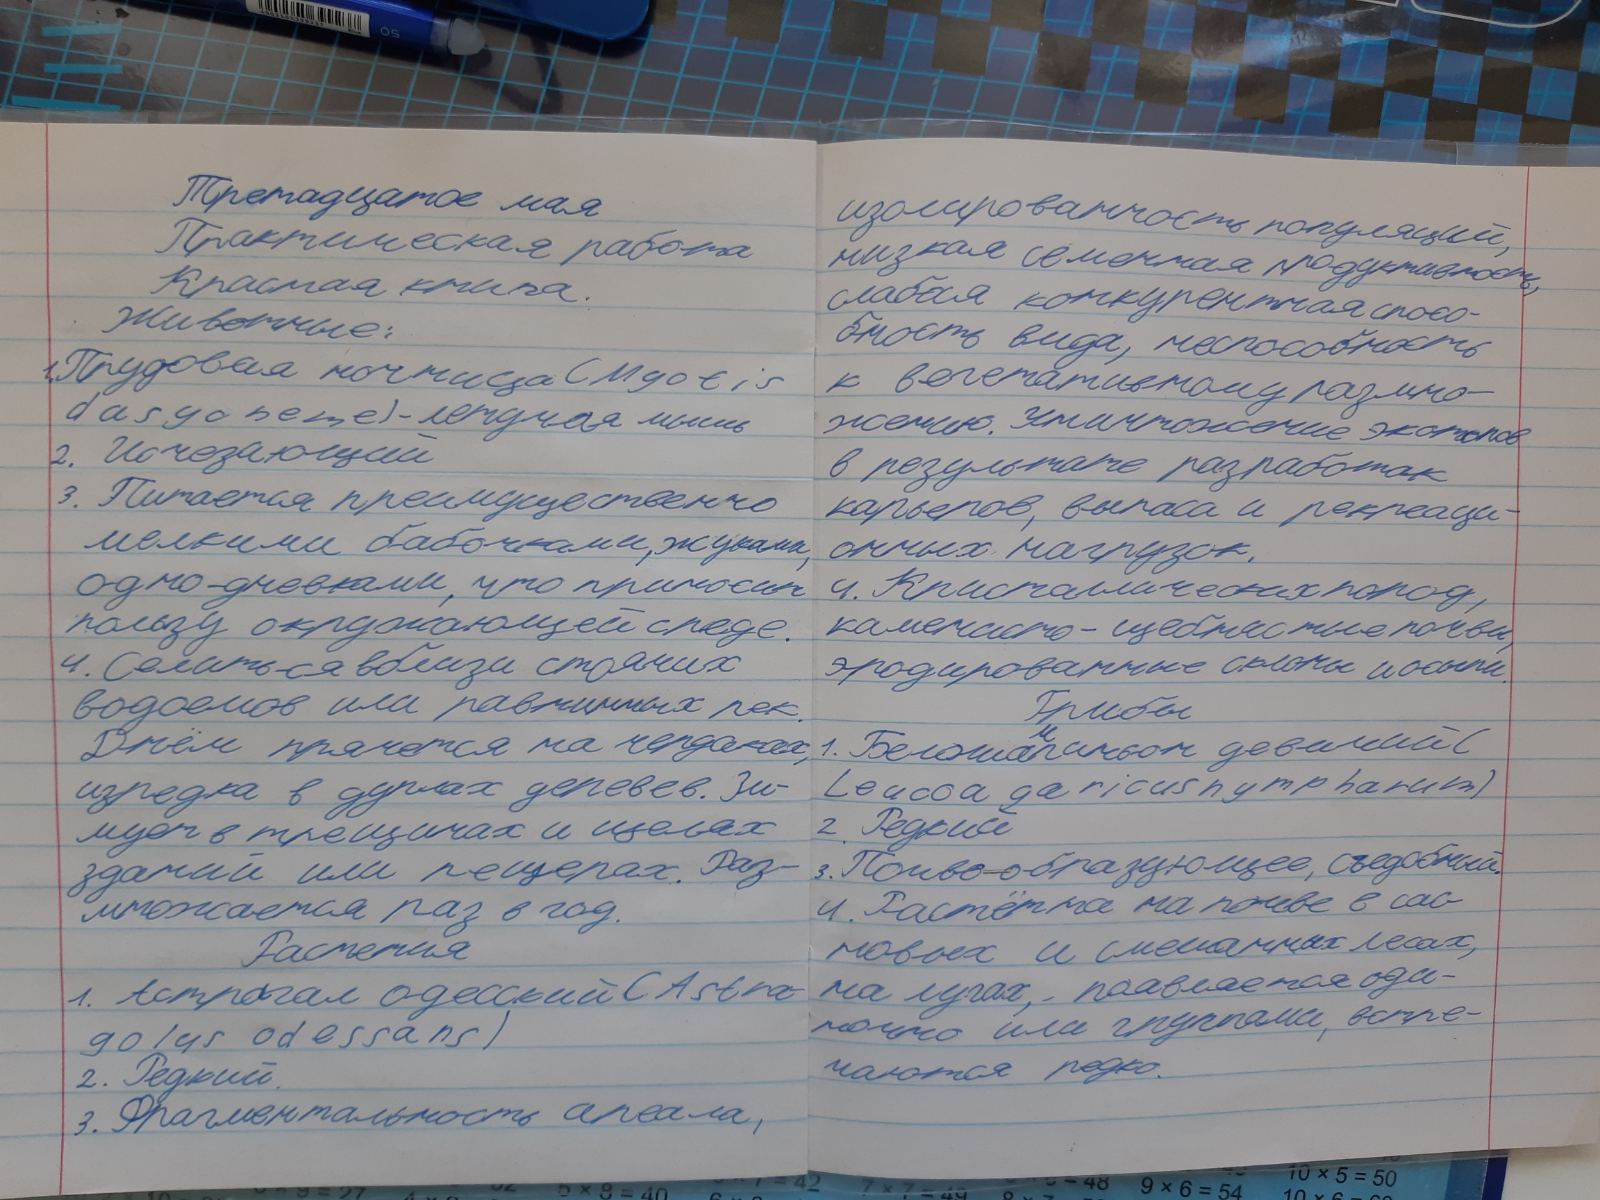 05
Третадцатое мая
Практическая работа
Красная книга.
Животные:
1. Прудовая ночница (Myotis
dasycneme) - летучая мышь
2. Исчезающий
3. Питается преимущественно
мелкими бабочками, жуками,
одно-дневками, что приносит
пользу окружающей среде.
4. Селиться вблизи стоячих
водоемов или равнинных рек.
Днём прячется на чердаках,
изредка в дуплах деревев. Зи-
мует в трещинах и щелях
зданий или пещерах. Раз-
множается раз в год.
Растения
1. Астрагал одесский (Astra-
golys odessans)
2. Редкий.
3. Фрагментальность ареала,
изолированность популяций,
низкая семенная продуктивность,
слабая конкурентная спосо-
бность вида, неспособность
к вегетативному размно-
жению. Уничтожение экотопов
в результате разработак
карьеров, выпаса и рекреаци-
онных нагрузок.
4. Кристаллических пород,
каменисто-щебнистые почвы,
эродированные склоны и осыпи.
Грибы
1. Белошампиньон девичий (
Leucoagaricus nympharum)
2. Редкий
3. Почво-образующее, съедобный.
4. Растёт на почве в сос-
новых и смешанных лесах,
на лугах, появляется оди-
ночно или группами, встре-
чаются редко.
5 × 8 = 40
7 × 7 = 49
9 × 6 = 54
10 × 5 = 50